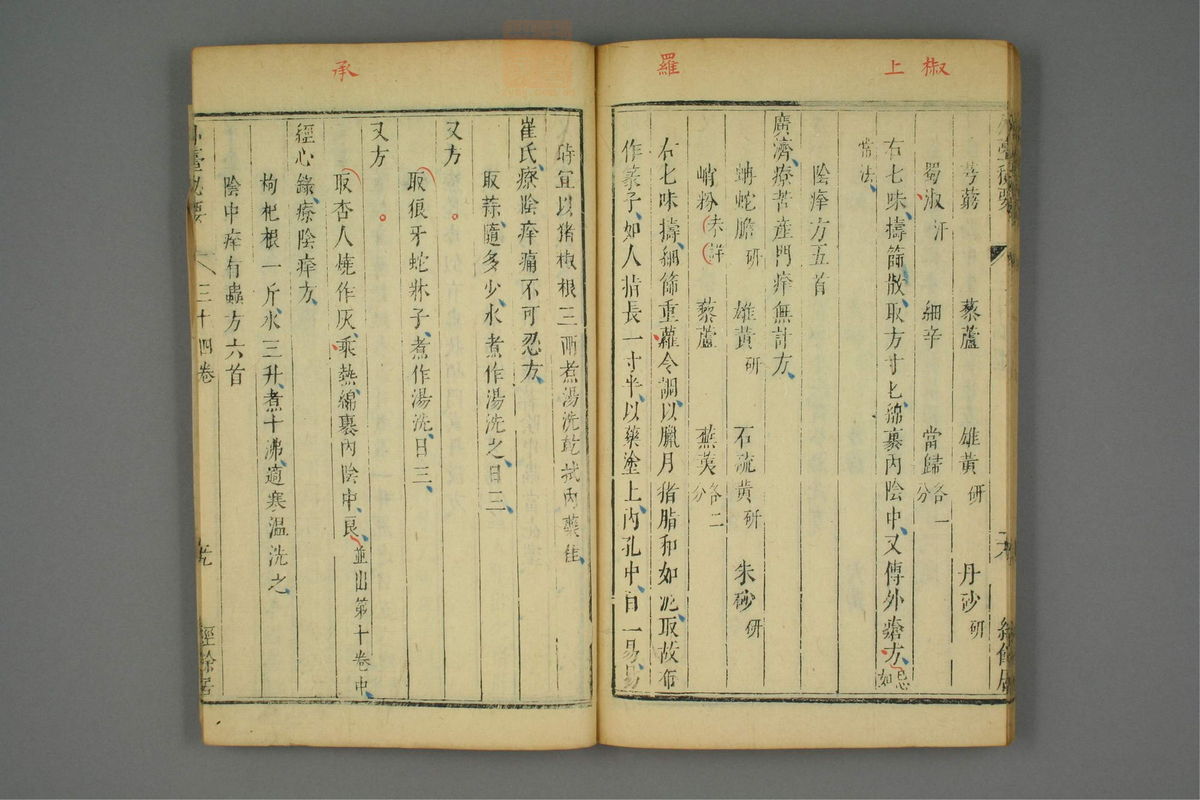 椒上
羅
承
芎藭 藜蘆 雄黃研 丹砂研
蜀淑汗 細辛 當歸各一分
右七味擣篩散取方寸匕綿裹內陰中又傅外瘡方忌如
常法
陰痒方五首
廣濟療苦產門痒無計方
蚺蛇膽研 雄黃研 石硫黃研 朱砂研
峭粉未詳 藜蘆 蕪荑各二分
右七味擣細篩重蘿令調以臘月猪脂和如泥取故布
作篆子如人指長一寸半以藥塗上內孔中日一易易
時宜以猪椒根三兩煮湯洗乾拭內藥佳
崔氏療陰痒痛不可忍方
取蒜隨多少水煮作湯洗之日三
又方
取狼牙蛇牀子煮作湯洗日三
又方
取杏人燒作灰乘熱綿裹內陰中良並出第十卷中
經心錄療陰痒方
枸杞根一斤水三升煮十沸適寒温洗之
陰中痒有蟲方六首
外臺秘要 三十四卷 經餘居